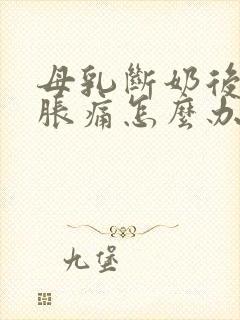 母乳斷奶後
脹痛怎麼办
九堡